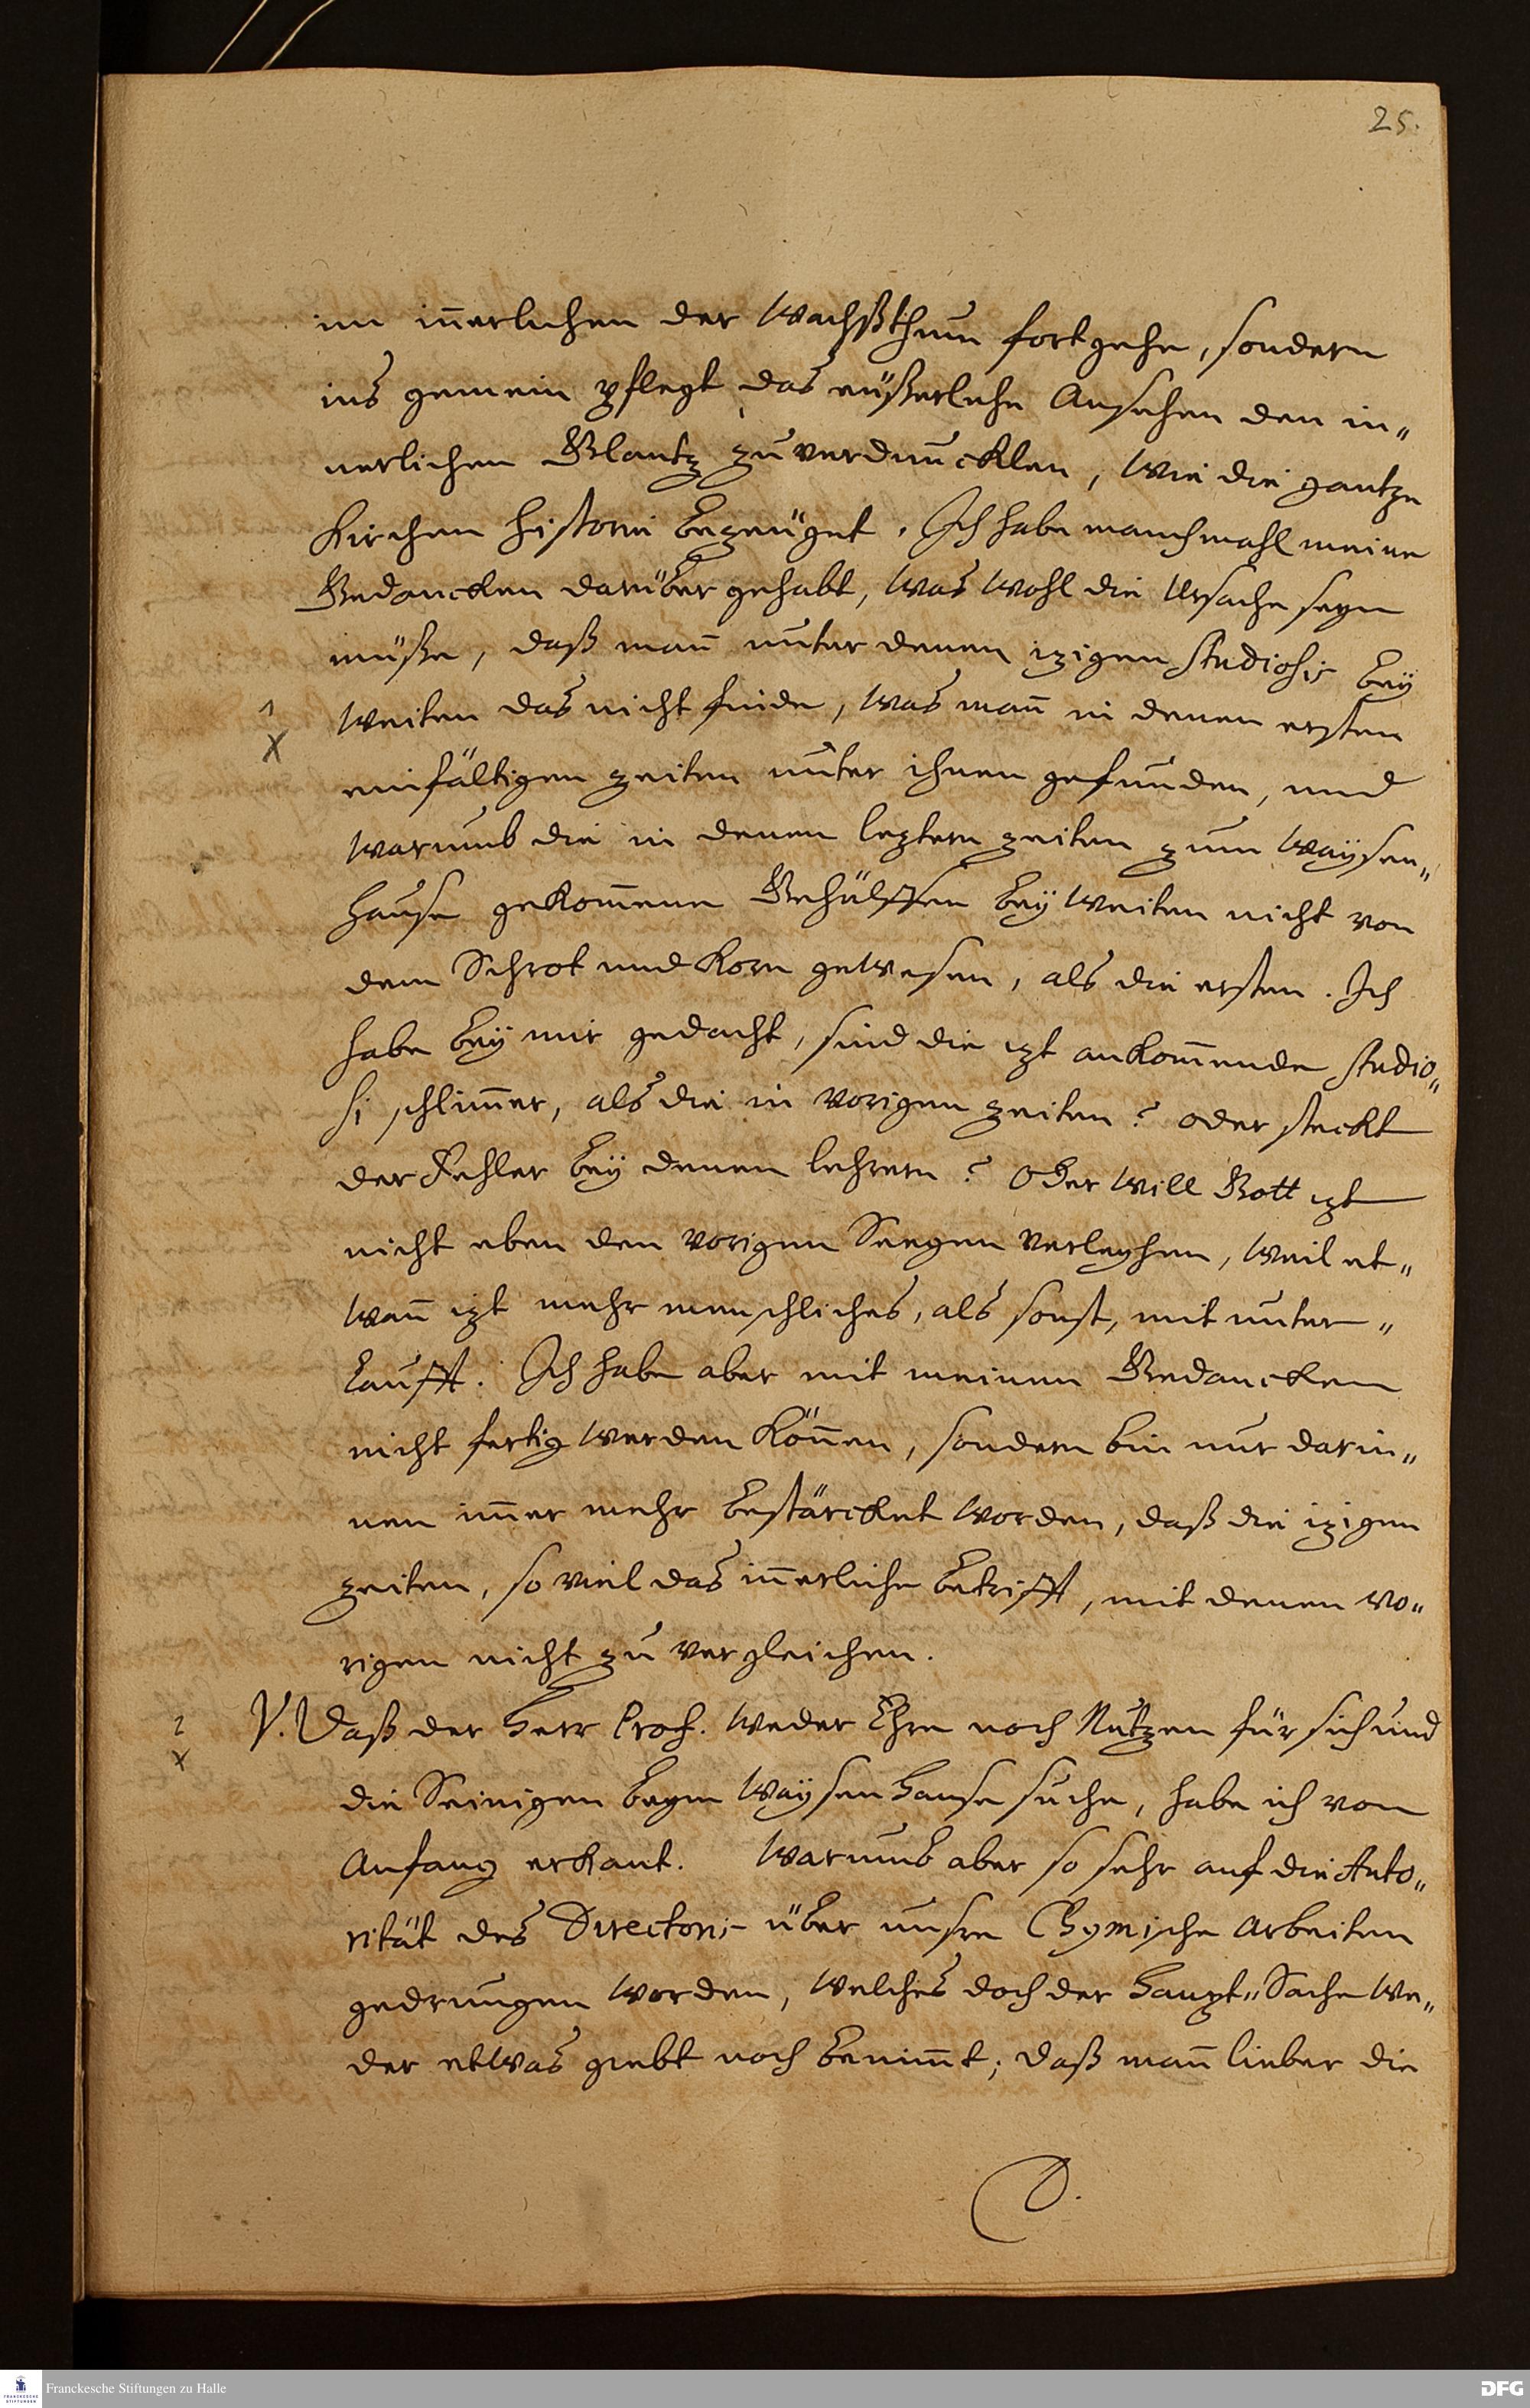 25.
im iñerlichen der Wachßthum fortgehe, sondern
ins gemein pflegt das eüßerliche Ansehen den in„
nerlichen Glantz zu verdunckklen, wie die gantze
Kirchen Historie bezeüget. Ich habe manchmahl meine
Gedancken darüber gehabt, was wohl die Ursache seyn
müße, daß mañ unter denen izigen Studiosis beÿ
1
weiten das nicht finde, was mañ in denen ersten
X
einfältigen zeiten unter ihnen gefunden, und
warumb die in denen leztern zeiten zum Waÿsen„
hause gekom̃ene Gehülffen beÿ weiten nicht von
dem Schrot und Korn gewesen, als die ersten. Ich
habe beÿ mir gedacht, sind die izt ankom̃ende Studio„
si schlim̃er, als die in vorigen zeiten? oder steckt
der Fehler beÿ denen lehrern? Oder will Gott izt
nicht eben den vorigen Seegen verleyhen, weil et„
wañ izt mehr menschliches, als sonst, mit unter„
laufft. Ich habe aber mit meinen Gedancken
nicht fertig werden köñen, sondern bin nur darin„
nen im̃er mehr bestärcket worden, daß die izigen
zeiten, so viel das iñerliche betrifft, mit denen vo„
rigen nicht zu vergleichen.
2
V. Daß der Herr Prof. weder Ehre noch Nutzen für sich und
X
die Seinigen beym Waÿsen Hause suche, habe ich von
Anfang erkant. Warumb aber so sehr auf die Auto„
rität des Directoris über unsre Chymische Arbeiten
gedrungen worden, welches doch der Haupt„Sache we„
der etwas giebt noch benim̃t; daß mañ lieber die
D.
Franckesche Stiftungen zu Halle
FRANCKESCHE STIFTUNGEN
DFG